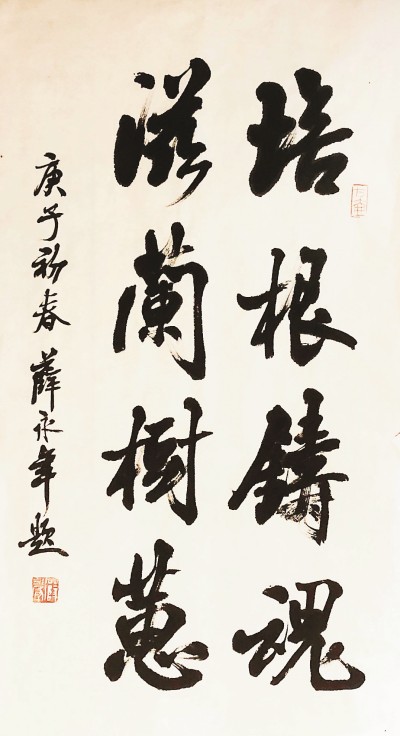 培根鑄魂
滋蘭樹蕙
庚子初春 薛永年題